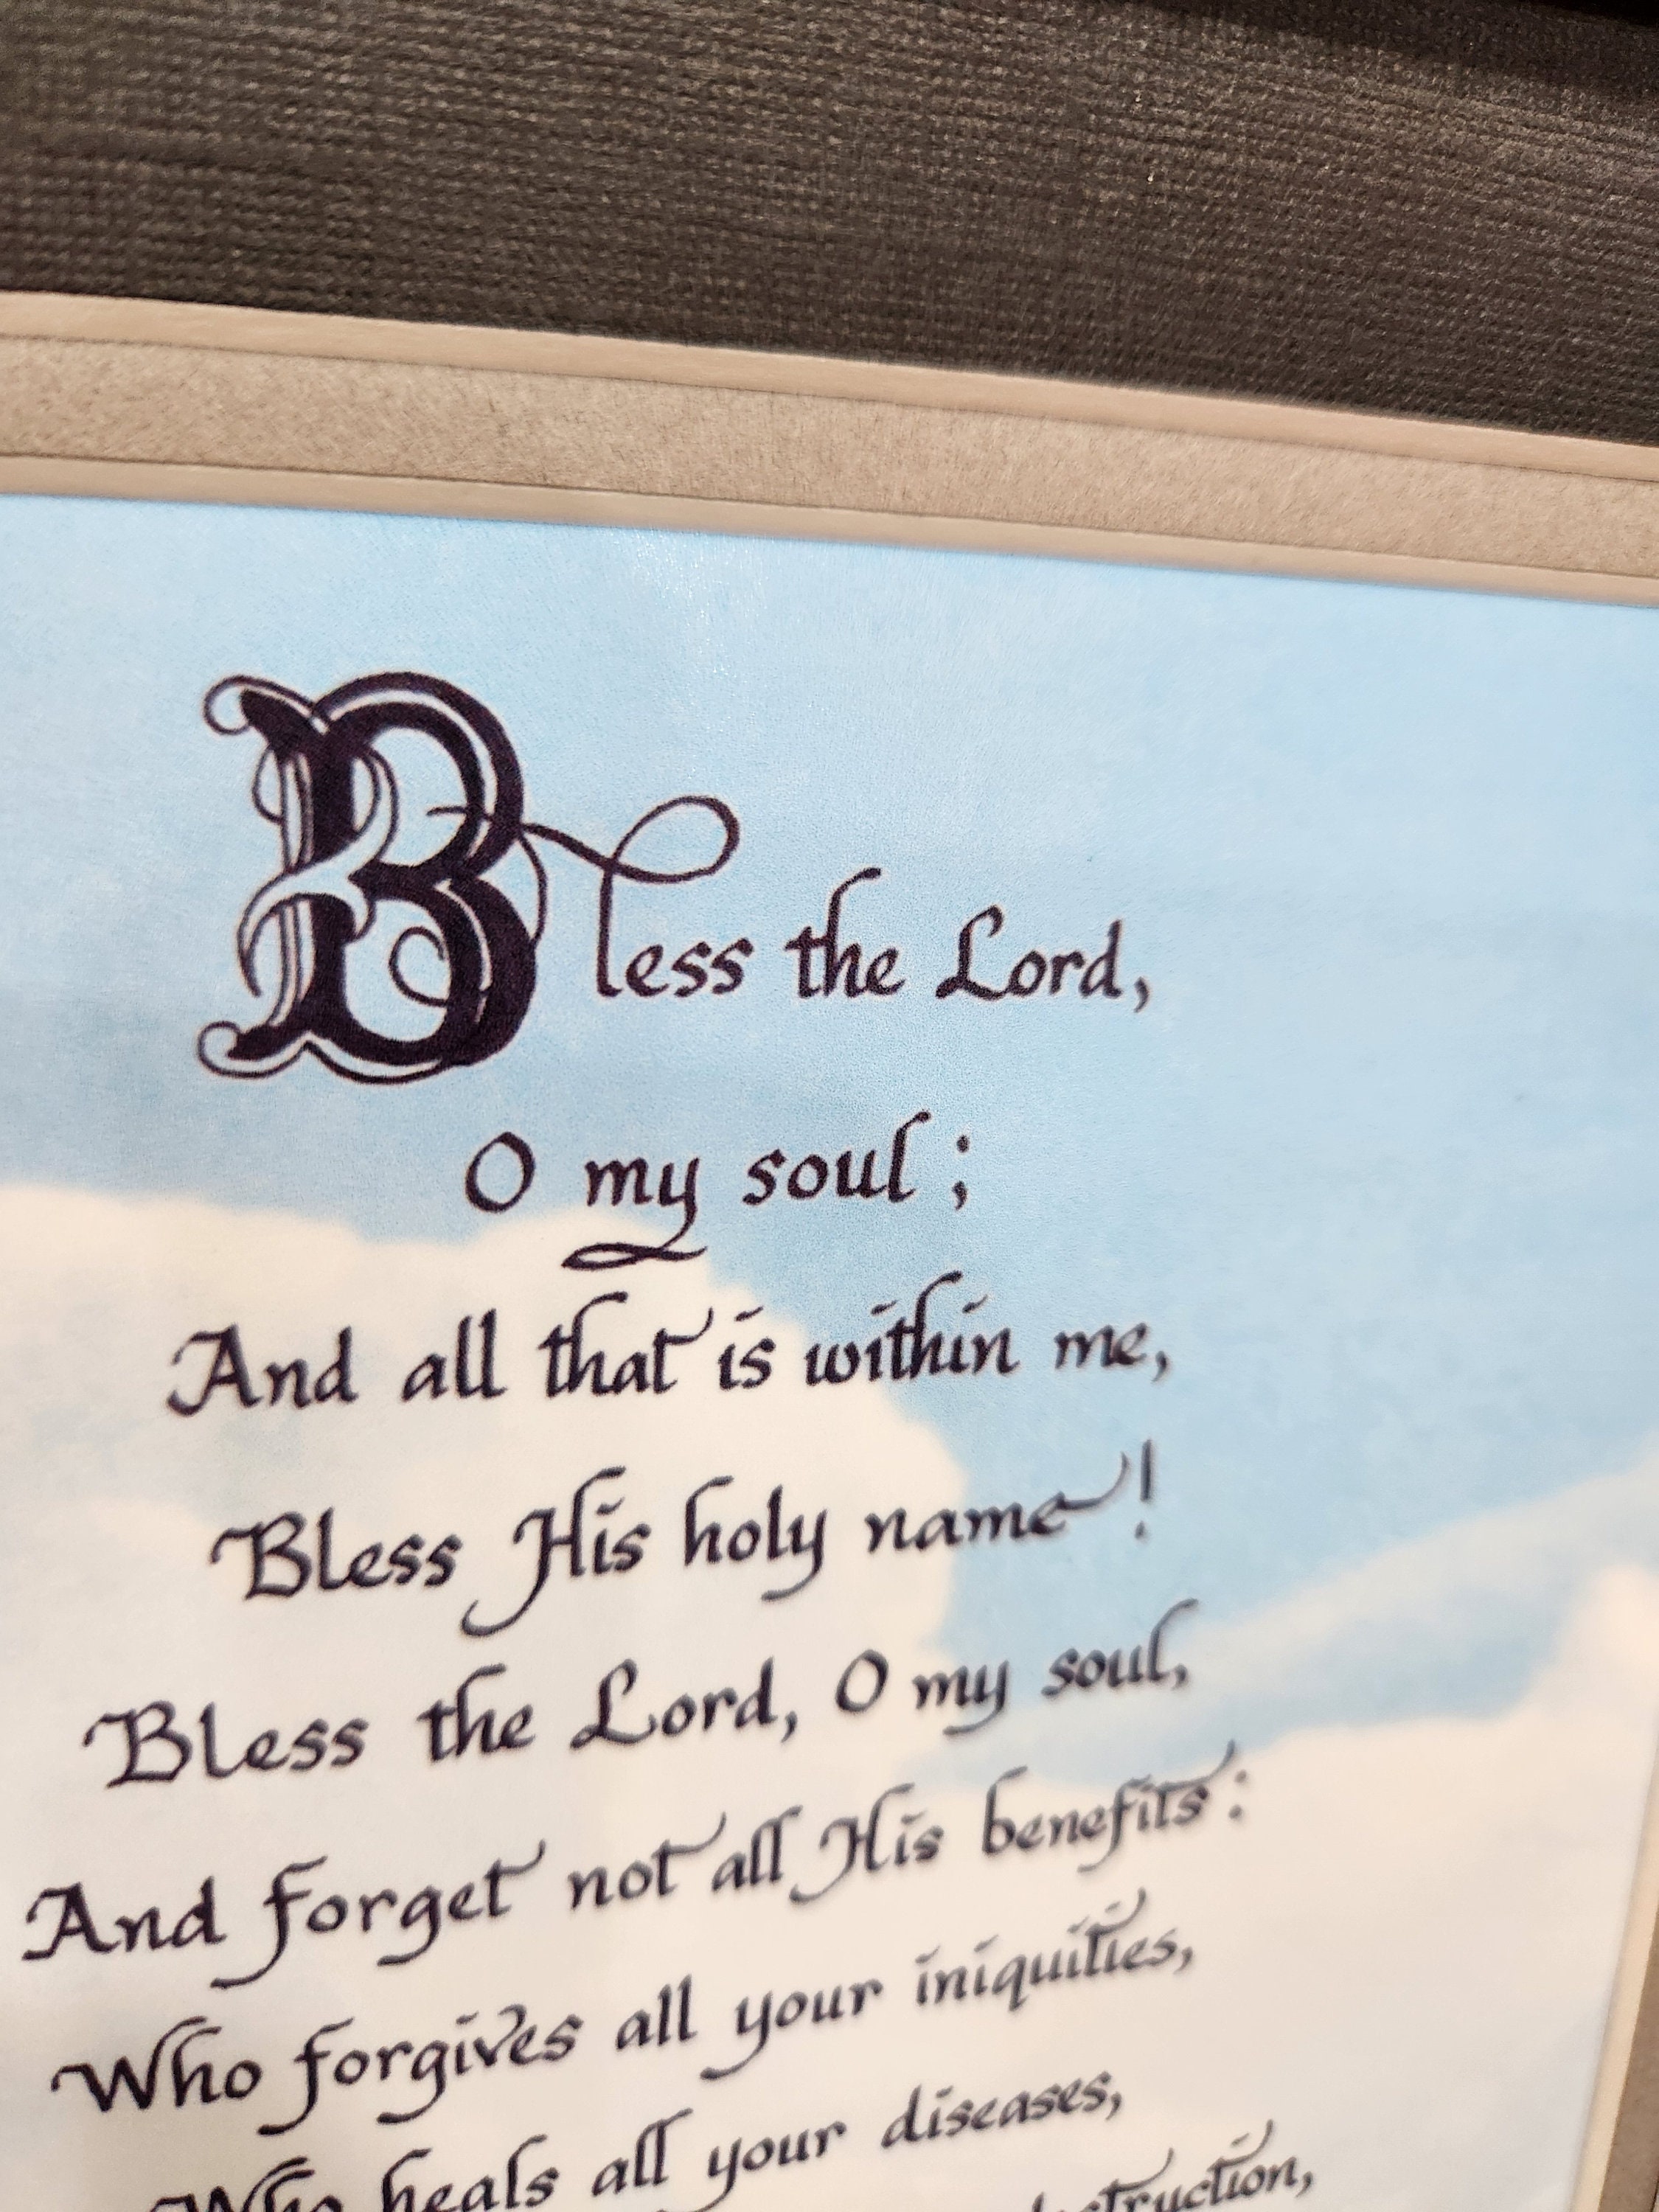 Bless the Lord,
O my soul;
And all that is within me,
Bless His holy name!
Bless the Lord, O my soul,
And forget not all His benefits:
Who forgives all your iniquities,
Who heals all your diseases,